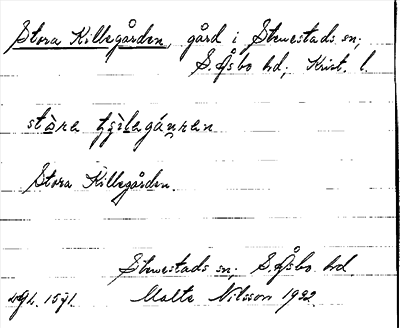 Stora Killegården, gård i Stenestads sn;
S. Åsbo hd; Krist. l.
Stora Killegården.
Stenestads sn; S. Åsbo hd.
Malte Nilsson 1932.